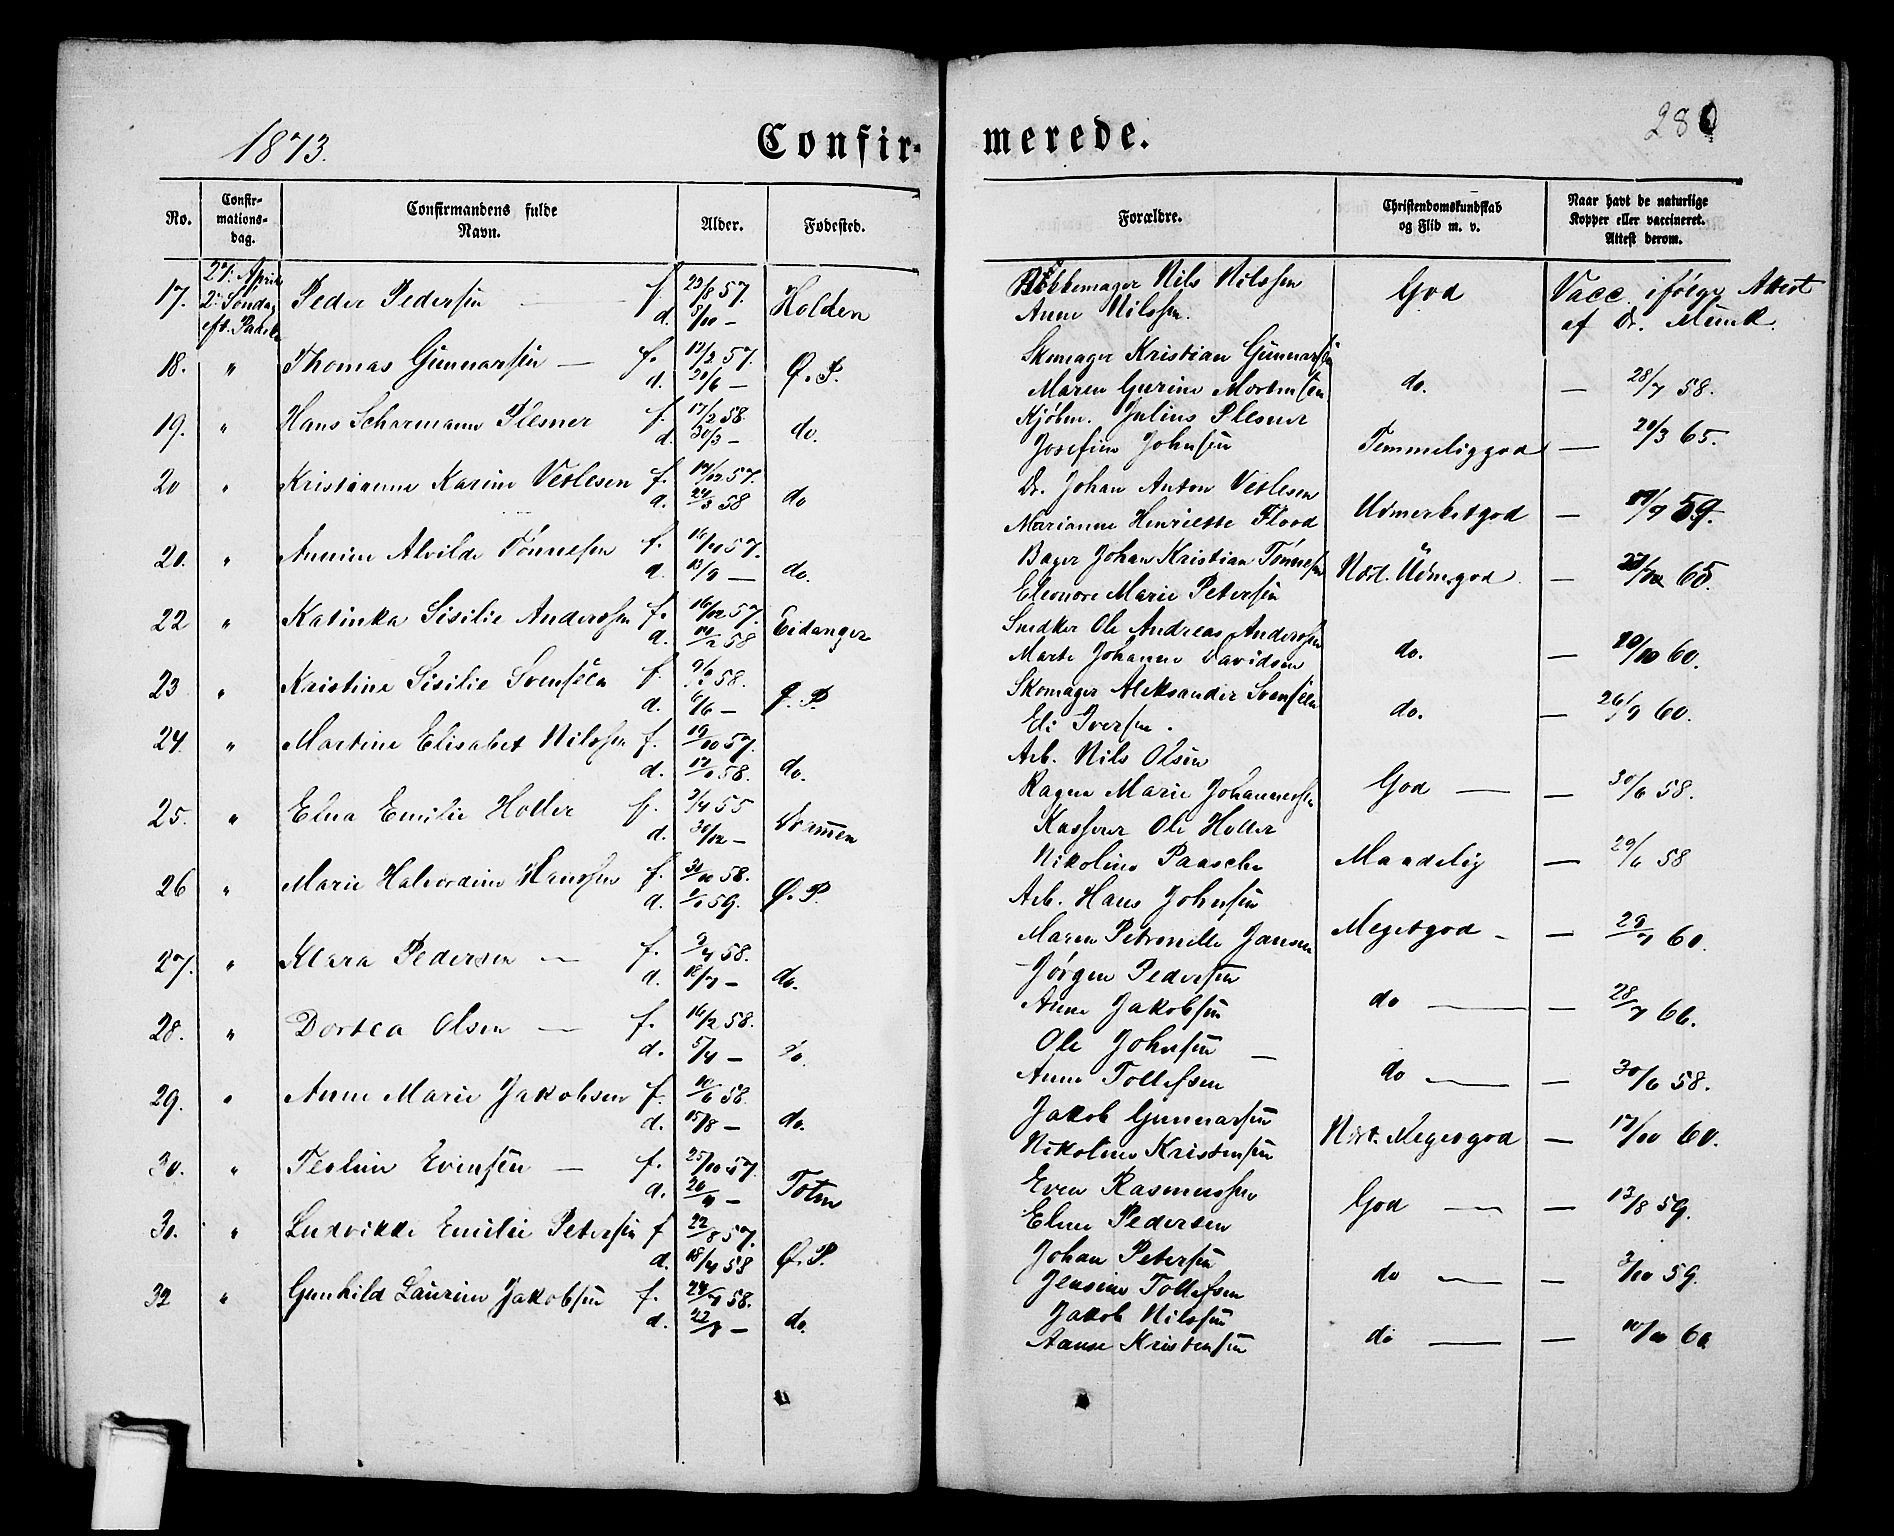 1873.
Confir-
merede.
280
No.
Confir-
mations-
dag.
Confirmandens fulde
Navn.
Alder.
Fødested.
Forældre.
Christendomskundskab
og Flid m. v.
Naar havt de naturlige
Kopper eller vaccineret.
Attest derom.
17. 27. April 2. Søndag eft. Paaske Peder Pedersen — f. 23/8 57. d. 5/10 — Holden
Nils Nilssen Anne Nilssen. God Vacc. ifølge Attest af Dr. Munk
18. " Thomas Gunnarsen — f. 12/2 57. d. 21/6 — Ø. P.
Skomager Kristian Gunnarsen Maren Gurine Mortensen do. — 28/7 58.
19. " Hans Scharmann Plesner f. 17/2 58. d. 30/3 — do.
Kjøbm. Julius Plesner Josefine Johnsen Temmelig god — 21/3 65.
20 " Kristianne Karine Vetlesen f. 14/12 57. d. 24/3 58 do
Dr. Johan Anton Vetlesen Marianne Henriette Flood Udmerketgod — 19/7 59.
20. " Annine Alvilde Tønnesen f. 16/4 57. d. 13/9 — do.
Bager Johan Kristian Tønnesen Eleonore Marie Petersen Næst. Udm. god. — 27/12 65.
22 " Katinka Sisilie Anderssen f. 16/12 57. d. 14/2 58 Eidanger
Snedker Ole Andreas Anderssen Marte Johanne Davidsen do. — 10/10 60.
23 " Kristine Sisilie Svensen f. 9/2 58. d. 6/6 — Ø. P.
Skomager Aleksander Svensen Eli Iversen. do. — 26/9 60.
24. " Martine Elisabet Nilssen f. 19/10 57. d. 17/1 58. do.
Arb. Nils Olsen Ragne Marie Johannessen God — — 30/6 58.
25. " Elna Emilie Holler f. 3/4 55 d. 30/12 —
Kasserer Ole Holler Nikoline Paasche Maadelig — 29/6 58
26 " Marie Halvordine Hanssen f. 30/10 58. d. 2/1 59. Ø. P.
Arb. Hans Johnsen Maren Petronelle Jansen Meget god — — 29/7 60.
27. " Klara Pedersen — f. 9/4 58. d. 18/7 — do.
Jørgen Pedersen Anne Jakobsen do — — 28/7 66.
28. " Dortea Olsen — f. 16/2 58. d. 5/4 — do.
Ole Johnsen Anne Tollefsen do — — 30/6 58.
29. " Anne Marie Jakobsen f. 10/6 58. d. 15/8 — do.
Jakob Gunnarsen Nikoline Kristensen Næst. Meget god — 17/10 60.
30. " Teoline Evensen — f. 25/10 57. d. 20/9 — Toten
Even Rasmussen Eline Pedersen God — — 13/8 59.
30. " Ludvikke Emilie Petersen f 22/8 57. d. 18/4 58 Ø. P.
Johan Petersen Jensine Tollefsen do — — 3/10 59.
32 " Gunhild Laurine Jakobsen f. 24/1 58. d. 22/8 — do.
Jakob Nilssen Aanse Kristensen do — — 10/10 60